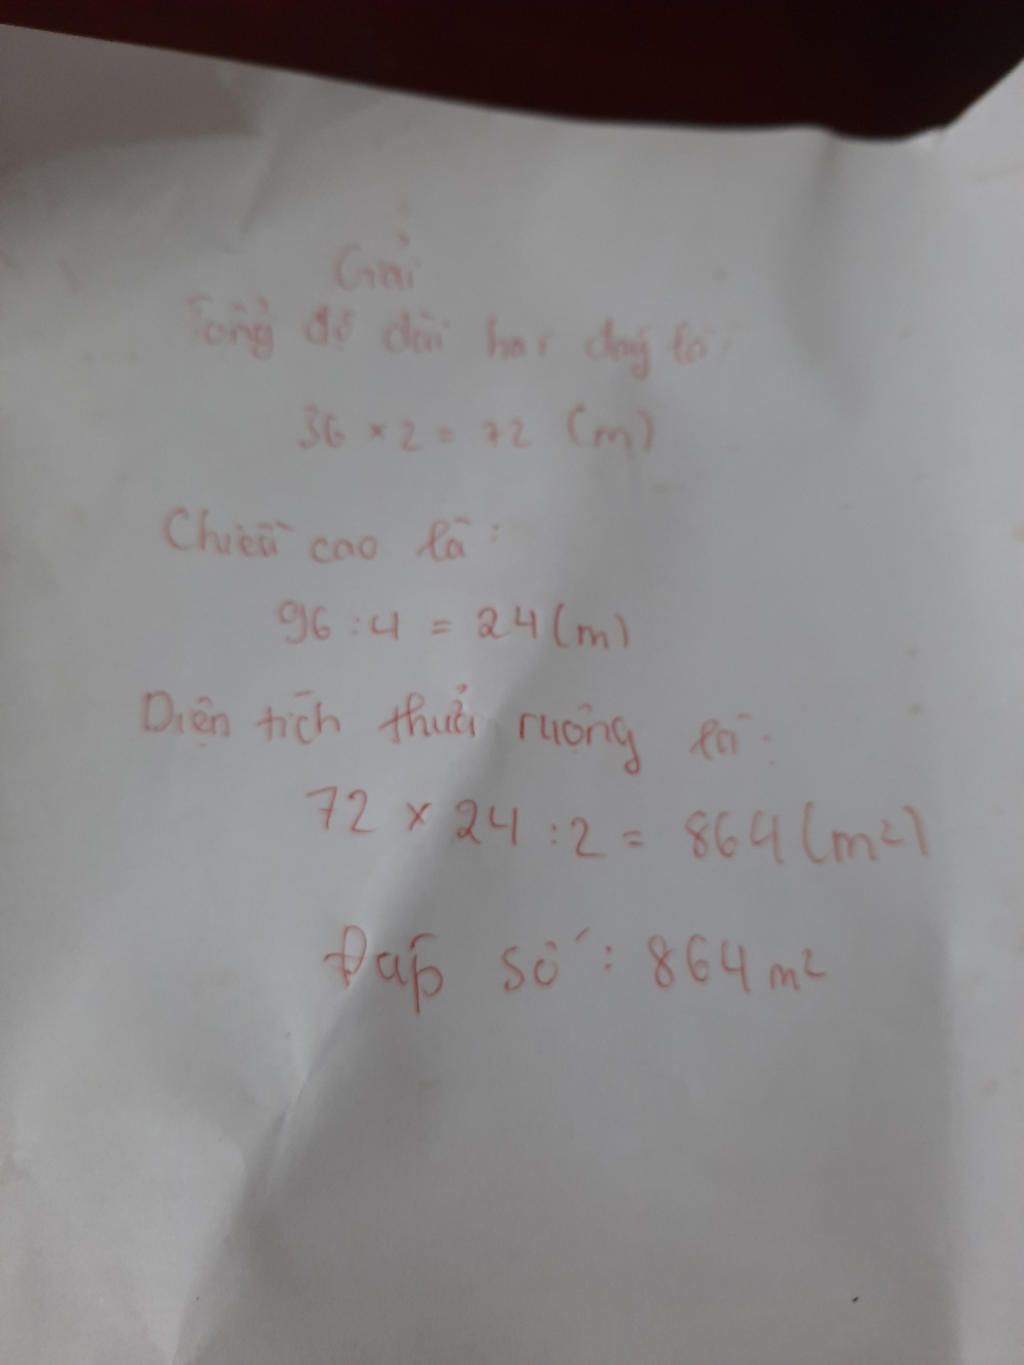 Giải
Tổng độ dài hai đáy là:
36 × 2 = 72 (m)
Chiều cao là:
96 : 4 = 24 (m)
Diện tích thửa ruộng là:
72 × 24 : 2 = 864 (m²)
Đáp số: 864 m²